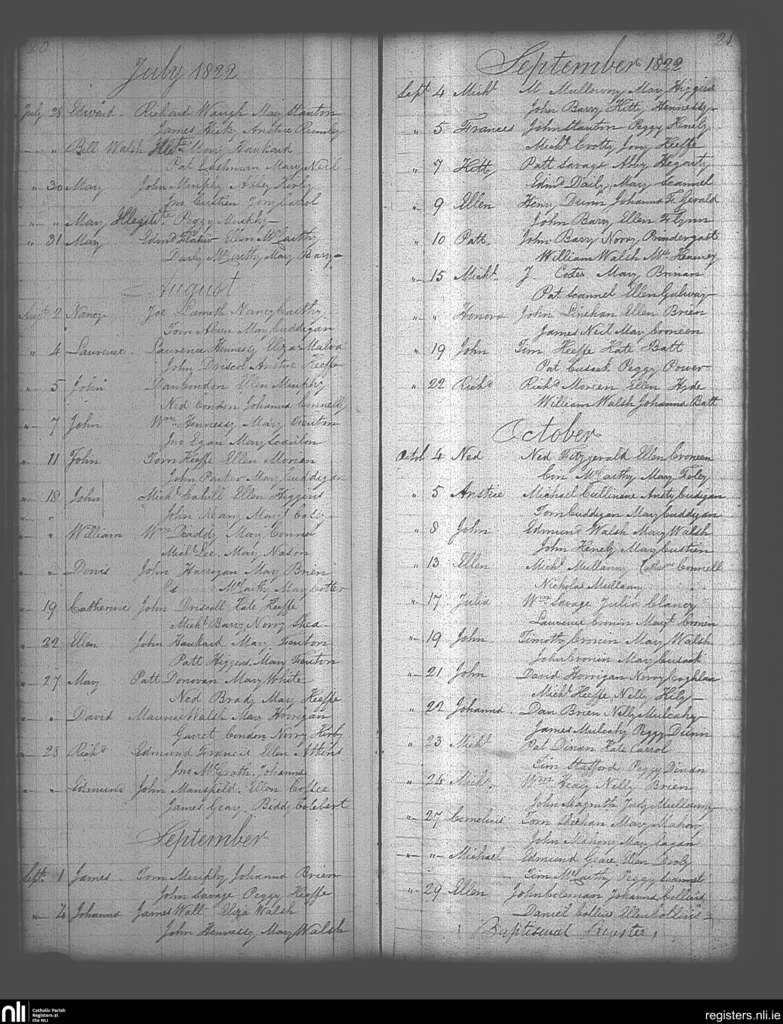 20
July 1822
July 28 Edward Richard Waugh Mary Stanton
James
" " Bill Walsh Mary Haukard
Pat Cashman Mary Neil
" 30 Mary John Murphy Abby Kirby
Carrol
" " Mary Illegitt Peggy Murphy
" 31 Mary Edmd Ellen McCarthy
Darly McCarthy Mary Barry
August
Augt 2 Nancy Joe Nancy Carthy
Tom Ahern Mary Cuddigan
" 4 Laurence Laurence Henessy Eliza
John Driscol Anstice Keeffe
" 5 John Dan Condon Ellen Murphy
Ned Condon Johanna Connell
" 7 John Wm Hennessy Mary
Jno Egan Mary Scanlon
" 11 John Tom Keeffe Ellen
John Parker Mary Cuddigan
" 18 John Michl Cahill Ellen Higgins
John Mary
" " William Wm Braddy Mary Connor
Michl Lee Mary Nason
" " Denis John Harrigan Mary Brien
McCarthy Mary Cotter
" 19 Catherine John Driscoll Kate Keeffe
Michl Barry Norry Shea
" 22 Ellen John Haukard Mary Stanton
Patt Higgins Mary Stanton
" 27 Mary Patt Donovan Mary White
Ned Brady Mary Keeffe
" " David Maurice Walsh Mary Horrigan
Garret Condon Norry Kirby
" 28 Richd Edmund Francis Ellen Atkins
Jno McGrath Johanna
" " Edmund John Mansfield Ellen Coffee
James Geary Biddy
September
Sept 1 James Tom Murphy Johanna Brien
John Savage Peggy Keeffe
" 2 Johanna James Wall Eliza Walsh
John Hennessy Mary Walsh
21
September 1822
Sept 4 Michl M Mullowny Mary Higgins
John Barry Kitty Hennessy
" 5 Frances John Stanton Peggy Henely
Michl Crotty Jony Keeffe
" 7 Hetty Patt Savage Abby Hegarty
Edmd Daily Mary Scannel
" 9 Ellen Henry Dunn Johanna Fz Gerald
John Barry Ellen Flynn
" 10 Patt John Barry Norry Prindergast
William Walsh
" 15 Michl J Coter Mary Brinan
Pat Scannel Ellen
" " Honora John Linehan Ellen Brien
James Neil Mary Croneen
" 19 John Tim Keeffe Kate Batt
Pat Cusack Peggy Power
" 22 Richd Richd Ellen Hyde
William Walsh Johanna Batt
October
Octob 4 Ned Ned Fitzgerald Ellen Croneen
Con McCarthy Mary Foley
" 5 Anstice Michael Cullinane Ansty Cudigan
Tom Cuddigan Mary Cuddigan
" 8 John Edmund Walsh Mary Walsh
John Henely Mary
" 13 Ellen Michl Mullany Connell
Nicholas Mullany
" 17 Julia Wm Savage Julia Clancy
Laurence Cronin Margt Cronen
" 19 John Timothy Cronen Mary Walsh
John Cronin Mary Cusack
" 21 John David Horrigan Norry Coughlan
Michl Keeffe Nelly
" 22 Johanna Dan Brien Nelly Mulcahy
James Mulcahy Peggy Dunn
" 23 Michl Pat Dinan Kate Carrol
Tim Stafford Peggy Dinan
" 24 Michl Wm Healy Nelly Brien
John Magrath Judy Mullany
" 27 Cornelius Tom Sheehan Mary Mahony
John Mahony Mary Eagan
" " Michael Edmund Ellen
Tim McCarthy Peggy Scannel
" 29 Ellen John Coleman Johanna Collins
Daniel Collins Ellen Collins
Baptismal Register
nli
Catholic Parish
Registers at
the NLI
registers.nli.ie